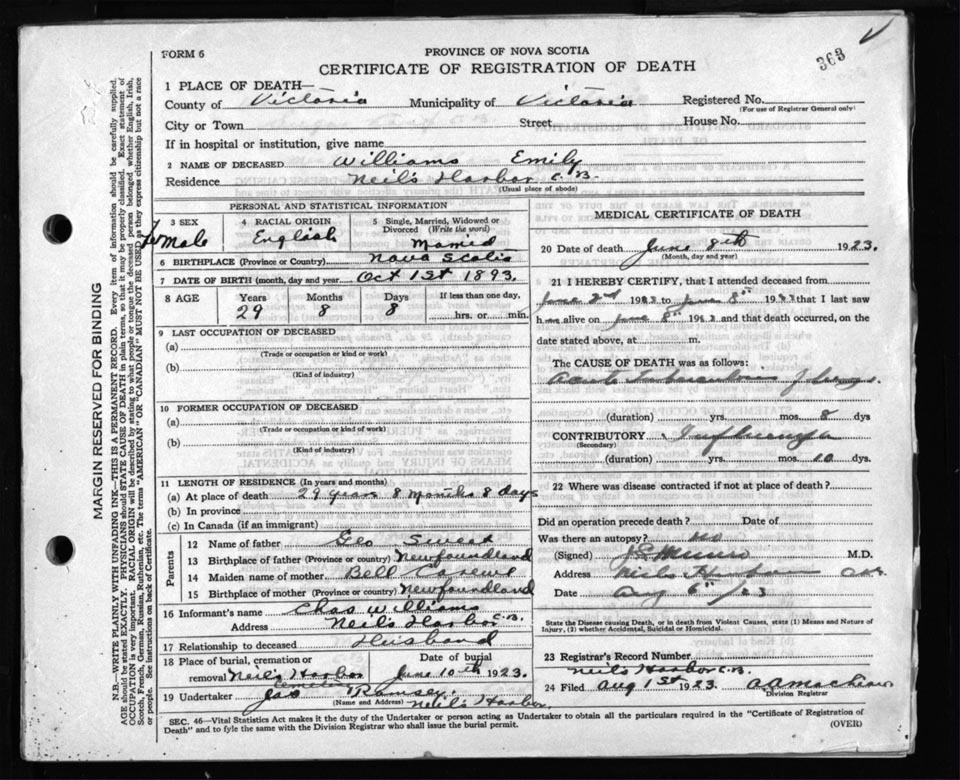 363
FORM 6
PROVINCE OF NOVA SCOTIA
CERTIFICATE OF REGISTRATION OF DEATH
1 PLACE OF DEATH—
County of Victoria Municipality of Victoria Registered No.
(For use of Registrar General only)
City or Town Street House No.
If in hospital or institution, give name
2 NAME OF DECEASED Williams Emily
Residence Neil's Harbor C.B.
(Usual place of abode)
PERSONAL AND STATISTICAL INFORMATION
3 SEX 4 RACIAL ORIGIN 5 Single, Married, Widowed or Divorced (Write the word)
Male English Married
6 BIRTHPLACE (Province or Country) Nova Scotia
7 DATE OF BIRTH (month, day and year) Oct 1st 1893.
8 AGE Years Months Days If less than one day,
29 8 8 hrs. or min.
9 LAST OCCUPATION OF DECEASED
(a)
(Trade or occupation or kind or work)
(b)
(Kind of industry)
10 FORMER OCCUPATION OF DECEASED
(a)
(Trade or occupation or kind of work)
(b)
(Kind of industry)
11 LENGTH OF RESIDENCE (In years and months)
(a) At place of death 29 years 8 Months 8 days
(b) In province
(c) In Canada (if an immigrant)
Parents
12 Name of father Geo Sweet
13 Birthplace of father (Province or country) Newfoundland
14 Maiden name of mother Bell
15 Birthplace of mother (Province or country) Newfoundland
16 Informant's name Chas Williams
Address Neil's Harbor C.B.
17 Relationship to deceased Husband
18 Place of burial, cremation or removal Neil's Harbor Date of burial June 10th 1923.
19 Undertaker Jas Ramsey.
(Name and Address) Neil's Harbor
MEDICAL CERTIFICATE OF DEATH
20 Date of death June 8th 1923.
(Month, day and year)
21 I HEREBY CERTIFY, that I attended deceased from
June 2nd 1923 to June 8th 1923 that I last saw
h alive on June 8th 1923 and that death occurred, on the
date stated above, at m.
The CAUSE OF DEATH was as follows:
Acute Tuberculosis of Lungs.
(duration) yrs. mos. 8 dys
CONTRIBUTORY Influenza
(Secondary)
(duration) yrs. mos. 10 dys.
22 Where was disease contracted if not at place of death?
Did an operation precede death? Date of
Was there an autopsy? no
(Signed) Munro M.D.
Address Neils Harbour
Date Aug 6th/23
State the Disease causing Death, or in death from Violent Causes, state (1) Means and Nature of Injury, (2) whether Accidental, Suicidal or Homicidal.
23 Registrar's Record Number
Neils Harbor C.B.
24 Filed Aug 1st 1923.
Division Registrar
SEC. 46—Vital Statistics Act makes it the duty of the Undertaker or person acting as Undertaker to obtain all the particulars required in the "Certificate of Registration of
Death" and to fyle the same with the Division Registrar who shall issue the burial permit.
(OVER)
MARGIN RESERVED FOR BINDING
N.B.—WRITE PLAINLY WITH UNFADING INK—THIS IS A PERMANENT RECORD. Every item of information should be carefully supplied.
AGE should be stated EXACTLY. PHYSICIANS should STATE CAUSE OF DEATH in plain terms, so that it may be properly classified. Exact statement of
OCCUPATION is very important. RACIAL ORIGIN will be described by stating to what people or tongue the deceased person belonged whether English, Irish,
Scotch, French, German, Russian, Ruthenian, etc. The terms "AMERICAN" OR "CANADIAN" MUST NOT BE USED as they express citizenship but not a race
or people. See instructions on back of Certificate.